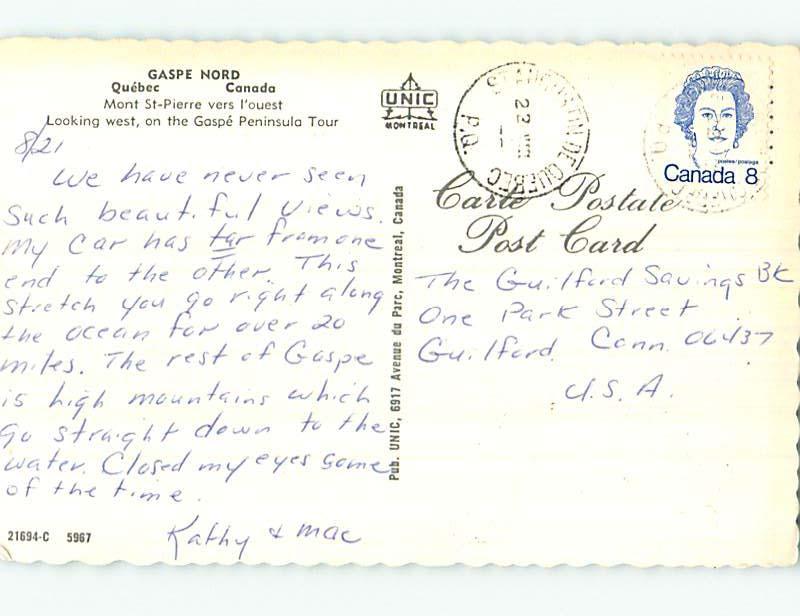 GASPE NORD
Québec Canada
Mont St-Pierre vers l'ouest
Looking west, on the Gaspé Peninsula Tour
UNIC
MONTREAL
8/21
We have never seen
Such beautiful views.
My Car has tar from one
end to the other. This
stretch you go right along
the ocean for over 20
miles. The rest of Gaspe
is high mountains which
go straight down to the
water. Closed my eyes some
of the time.
Kathy & Mac
21694-C 5967
Pub. UNIC, 6917 Avenue du Parc, Montreal, Canada
ST-AUGUSTIN DE QUEBEC
P.Q.
22
postes/postage
Canada 8
P.Q.
Carte Postale
Post Card
The Guilford Savings BK
One Park Street
Guilford. Conn. 06437
U.S.A.